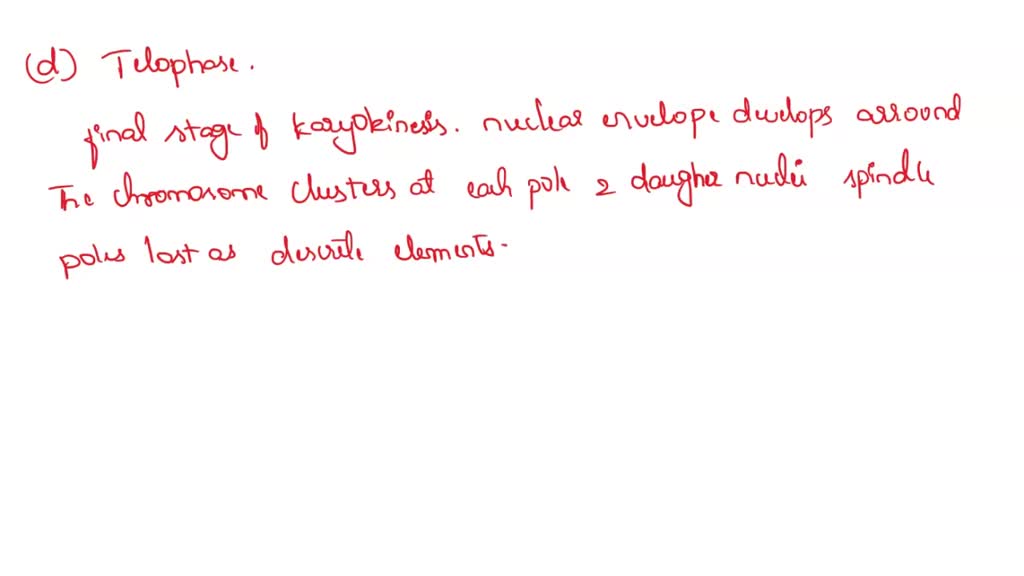 (d) Telophase.
final stage of karyokinesis. nuclear envelope develops arround
The chromosome clusters at each pole 2 daugher nuclei spindle
poles lost as descrete elements.